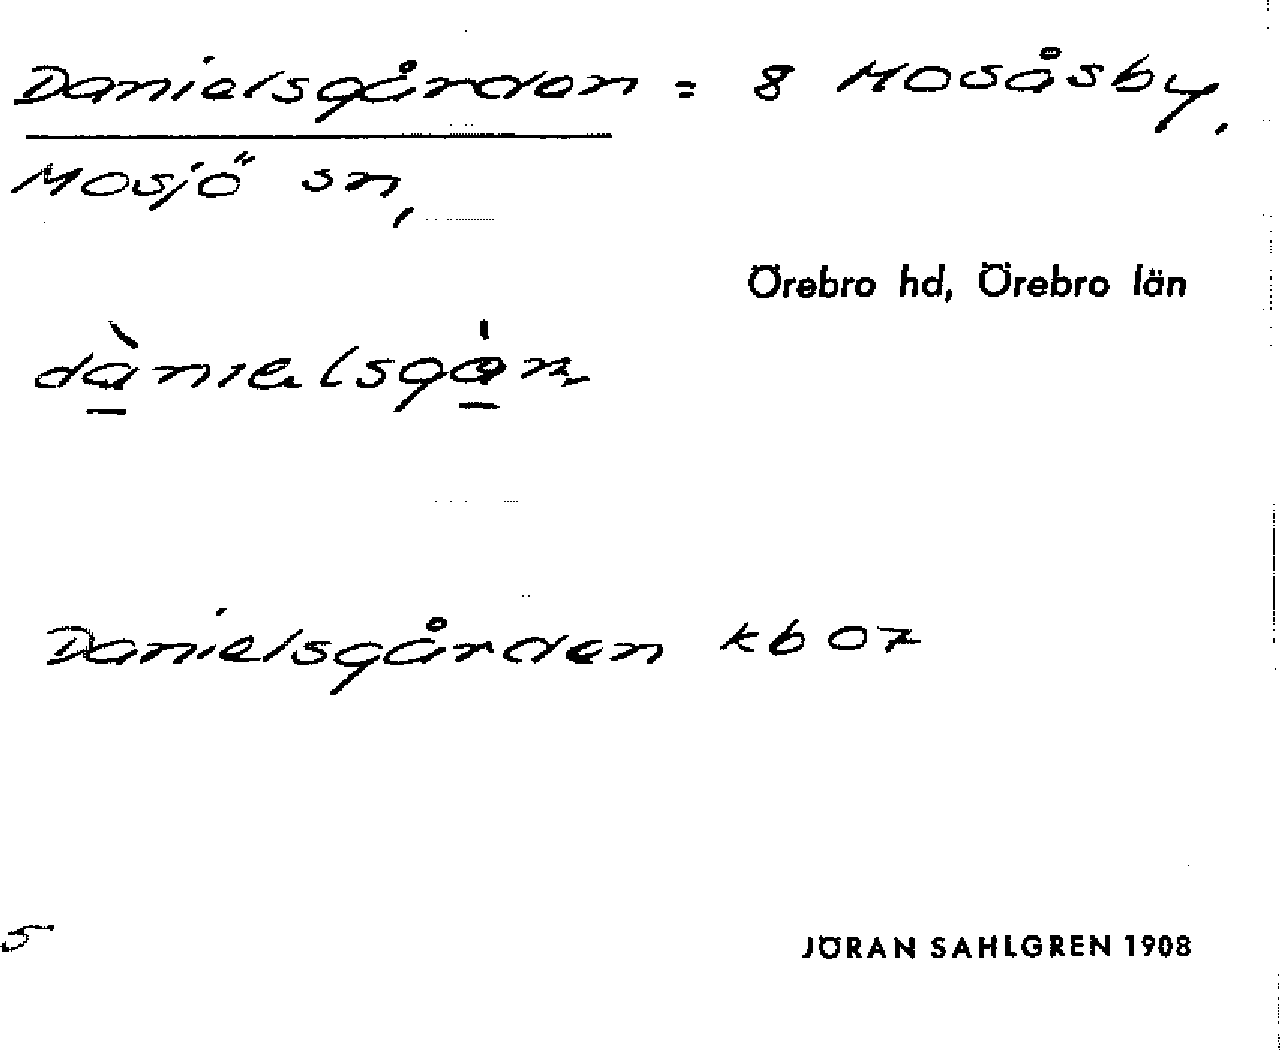 Danielsgården = 8 Mosåsby,
Mosjö sn,
Örebro hd, Örebro län
Danielsgården kb 07
5
JÖRAN SAHLGREN 1908